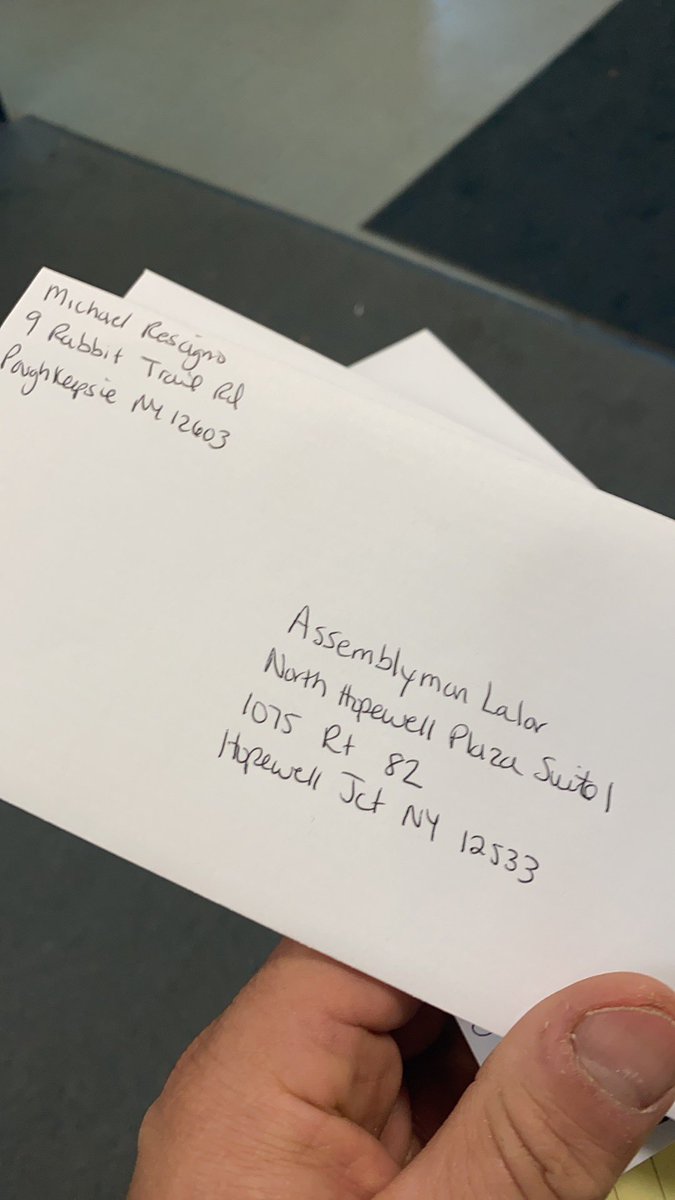 Michael Rescigno
9 Rabbit Trail Rd
Poughkeepsie NY 12603
Assemblyman Lalor
North Hopewell Plaza Suite 1
1075 Rt 82
Hopewell Jct NY 12533